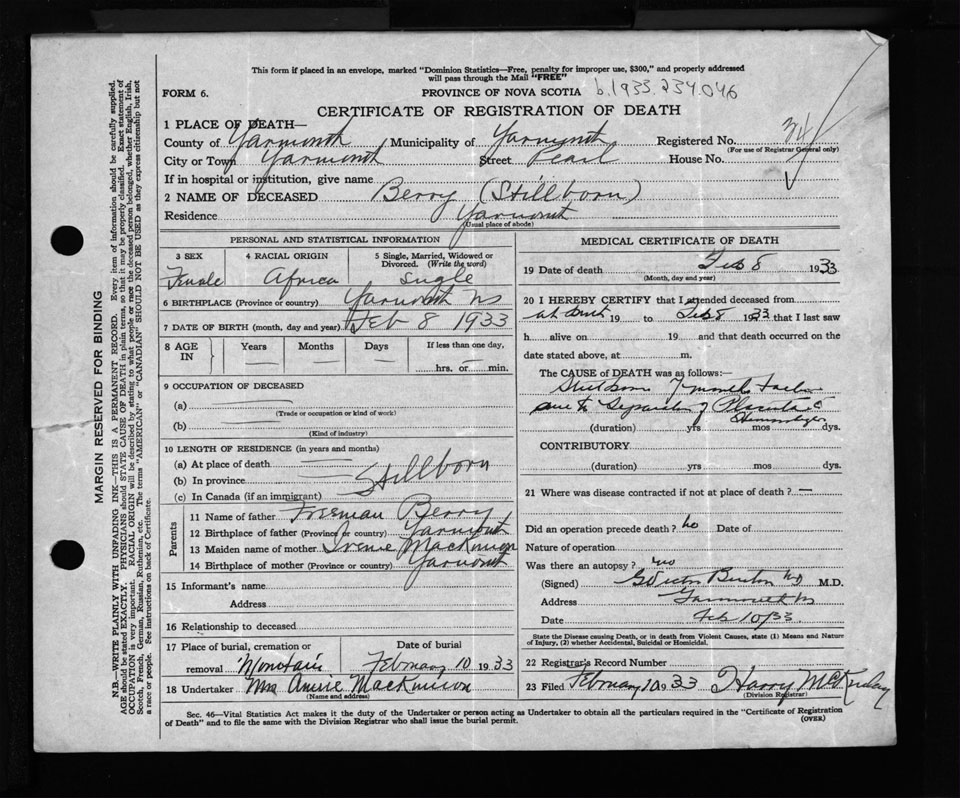 This form if placed in an envelope, marked "Dominion Statistics—Free, penalty for improper use, $300," and properly addressed
will pass through the Mail "FREE"
b.1933.234046
FORM 6.
PROVINCE OF NOVA SCOTIA
CERTIFICATE OF REGISTRATION OF DEATH
34
1 PLACE OF DEATH—
County of Yarmouth Municipality of Yarmouth Registered No.
(For use of Registrar General only)
City or Town Yarmouth Street Pearl House No.
If in hospital or institution, give name
2 NAME OF DECEASED Berry (Stillborn)
Residence Yarmouth
(Usual place of abode)
PERSONAL AND STATISTICAL INFORMATION
3 SEX 4 RACIAL ORIGIN 5 Single, Married, Widowed or
Divorced. (Write the word)
Female Africa Single
6 BIRTHPLACE (Province or country) Yarmouth NS
7 DATE OF BIRTH (month, day and year) Feb 8 1933
8 AGE IN Years Months Days If less than one day,
hrs. or min.
9 OCCUPATION OF DECEASED
(a)
(Trade or occupation or kind of work)
(b)
(Kind of industry)
10 LENGTH OF RESIDENCE (in years and months)
(a) At place of death
(b) In province Stillborn
(c) In Canada (if an immigrant)
Parents
11 Name of father Freeman Berry
12 Birthplace of father (Province or country) Yarmouth
13 Maiden name of mother Irene MacKinnon
14 Birthplace of mother (Province or country) Yarmouth
15 Informant's name
Address
16 Relationship to deceased
17 Place of burial, cremation or Date of burial
removal February 10 1933
18 Undertaker Mrs MacKinnon
(Name and address)
MEDICAL CERTIFICATE OF DEATH
19 Date of death Feb 8 1933
(Month, day and year)
20 I HEREBY CERTIFY that I attended deceased from
at birth 19 to Feb 8 1933 that I last saw
h alive on 19 and that death occurred on the
date stated above, at m.
The CAUSE of DEATH was as follows:
Stillborn 7 months
due to Separation of Placenta &
Hemorrhage
(duration) yrs mos dys.
CONTRIBUTORY
(duration) yrs mos dys.
21 Where was disease contracted if not at place of death? —
Did an operation precede death? No Date of
Nature of operation
Was there an autopsy? No
(Signed) Burton MD M.D.
Address Yarmouth NS
Date Feb 10/33
State the Disease causing Death, or in death from Violent Causes, state (1) Means and Nature
of Injury, (2) whether Accidental, Suicidal or Homicidal.
22 Registrar's Record Number
23 Filed February 10 1933 Harry McKinlay
(Division Registrar)
Sec. 46—Vital Statistics Act makes it the duty of the Undertaker or person acting as Undertaker to obtain all the particulars required in the "Certificate of Registration
of Death" and to file the same with the Division Registrar who shall issue the burial permit.
(OVER)
MARGIN RESERVED FOR BINDING
N.B.—WRITE PLAINLY WITH UNFADING INK—THIS IS A PERMANENT RECORD. Every item of information should be carefully supplied.
AGE should be stated EXACTLY. PHYSICIANS should STATE CAUSE OF DEATH in plain terms, so that it may be properly classified. Exact statement of
OCCUPATION is very important. RACIAL ORIGIN will be described by stating to what people or race the deceased person belonged, whether English, Irish,
Scotch, French, German, Russian, Ruthenian, etc. The terms "AMERICAN" or "CANADIAN" SHOULD NOT BE USED as they express citizenship but not
a race or people. See instructions on back of Certificate.